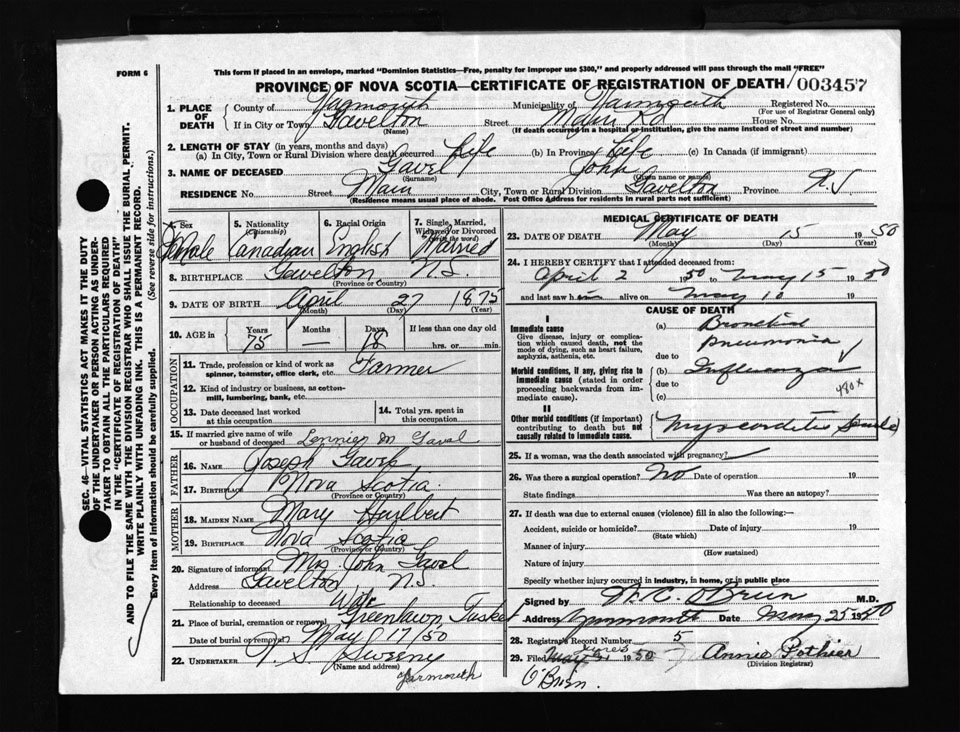 FORM 6
This form if placed in an envelope, marked "Dominion Statistics—Free, penalty for improper use $300," and properly addressed will pass through the mail "FREE"
PROVINCE OF NOVA SCOTIA—CERTIFICATE OF REGISTRATION OF DEATH 003457
1. PLACE OF DEATH County of Yarmouth Municipality of Yarmouth Registered No.
(For use of Registrar General only)
If in City or Town Gavelton Street Main Rd House No.
(Name) (If death occurred in a hospital or institution, give the name instead of street and number)
2. LENGTH OF STAY (in years, months and days)
(a) In City, Town or Rural Division where death occurred Life (b) In Province Life (c) In Canada (if immigrant)
3. NAME OF DECEASED Gavel John
(Surname) (Given name or names)
RESIDENCE No Street Main City, Town or Rural Division Gavelton Province N.S
(Residence means usual place of abode. Post Office Address for residents in rural parts not sufficient)
4. Sex 5. Nationality (Citizenship) 6. Racial Origin 7. Single, Married, Widowed or Divorced (write the word)
Male Canadian English Married
8. BIRTHPLACE Gavelton N.S.
(Province or Country)
9. DATE OF BIRTH April 27 1875
(Month) (Day) (Year)
10. AGE in Years Months Days If less than one day old
75 — 18 hrs. or min.
OCCUPATION
11. Trade, profession or kind of work as spinner, teamster, office clerk, etc. Farmer
12. Kind of industry or business, as cotton-mill, lumbering, bank, etc.
13. Date deceased last worked at this occupation 14. Total yrs. spent in this occupation
15. If married give name of wife or husband of deceased M Gavel
FATHER
16. Name Joseph Gavel
17. Birthplace Nova Scotia
(Province or Country)
MOTHER
18. Maiden Name Mary Hurlbert
19. Birthplace Nova Scotia
(Province or Country)
20. Signature of informant Mrs John Gavel
Address Gavelton, N.S.
Relationship to deceased Wife
21. Place of burial, cremation or removal Greenlawn, Tusket
Date of burial or removal May 17/50
22. UNDERTAKER Sweeny
(Name and address)
Yarmouth
MEDICAL CERTIFICATE OF DEATH
23. DATE OF DEATH May 15 1950
(Month) (Day) (Year)
24. I HEREBY CERTIFY that I attended deceased from
April 2 1950 to May 15 1950
and last saw him alive on May 10 19
CAUSE OF DEATH
I
Immediate cause
Give disease, injury or complication which caused death, not the mode of dying, such as heart failure, asphyxia, asthenia, etc.
(a) Bronchial pneumonia
due to
Morbid conditions, if any, giving rise to immediate cause (stated in order proceeding backwards from immediate cause).
(b) Influenza
due to 480x
(c)
II
Other morbid conditions (if important) contributing to death but not causally related to immediate cause.
Myocarditis (senile)
25. If a woman, was the death associated with pregnancy?
26. Was there a surgical operation? No Date of operation 19
State findings Was there an autopsy?
27. If death was due to external causes (violence) fill in also the following:—
Accident, suicide or homicide? Date of injury 19
(State which)
Manner of injury
(How sustained)
Nature of injury
Specify whether injury occurred in industry, in home, or in public place
Signed by O'Brien M.D.
Address Yarmouth Date May 25 1950
28. Registrar's Record Number 5
29. Filed 1950 Annie Pothier
(Division Registrar)
O'Brien.
SEC. 46—VITAL STATISTICS ACT MAKES IT THE DUTY
OF THE UNDERTAKER OR PERSON ACTING AS UNDER-
TAKER TO OBTAIN ALL THE PARTICULARS REQUIRED
IN THE "CERTIFICATE OF REGISTRATION OF DEATH"
AND TO FILE THE SAME WITH THE DIVISION REGISTRAR WHO SHALL ISSUE THE BURIAL PERMIT.
WRITE PLAINLY WITH UNFADING INK. THIS IS A PERMANENT RECORD.
Every item of information should be carefully supplied. (See reverse side for instructions.)